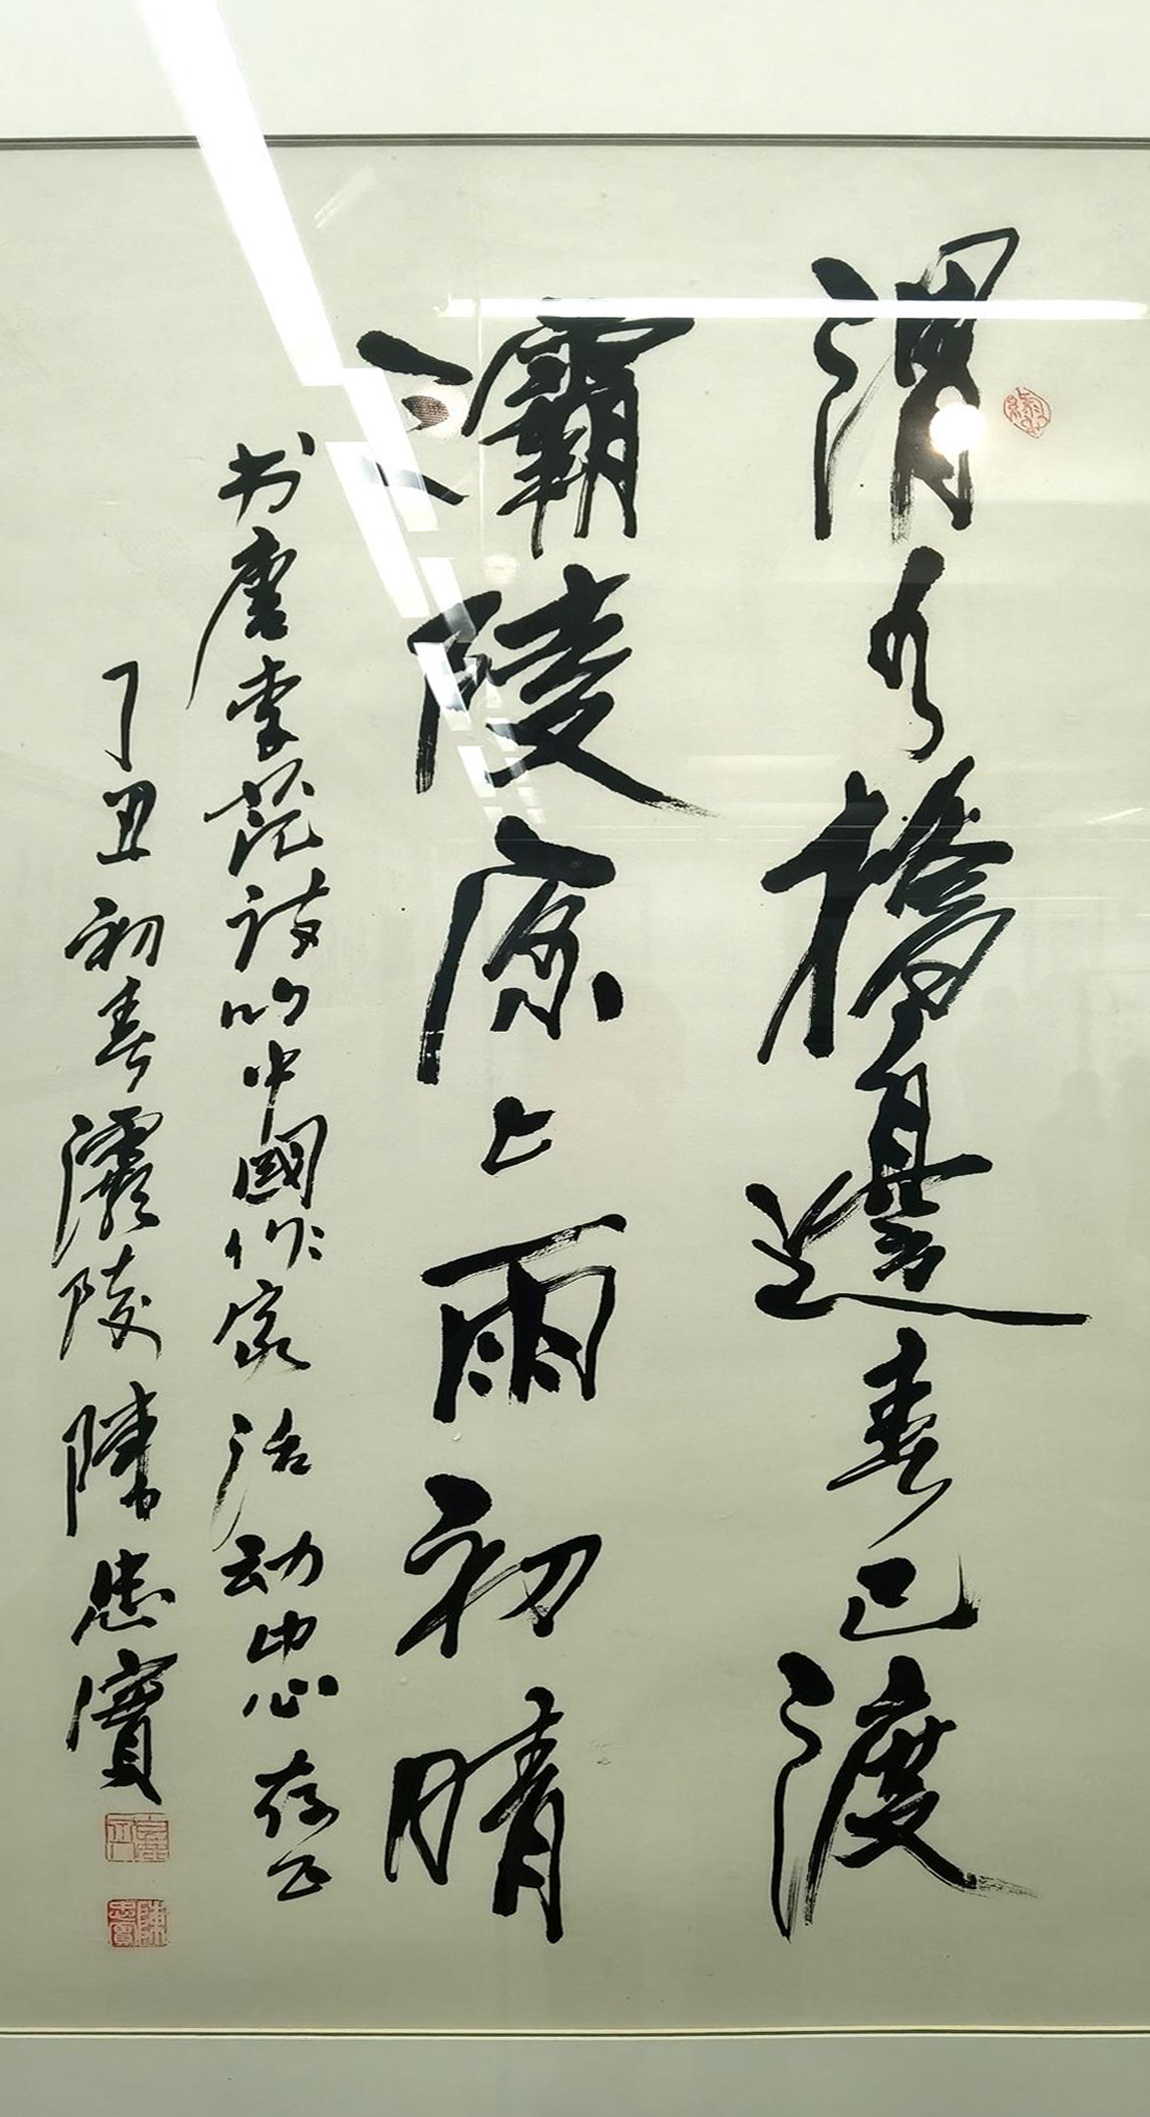 渭水橋邊春已渡
灞陵原上雨初晴
书唐李范诗以中國作家活动中心存正
丁丑初春灞陵陳忠實
陳忠實